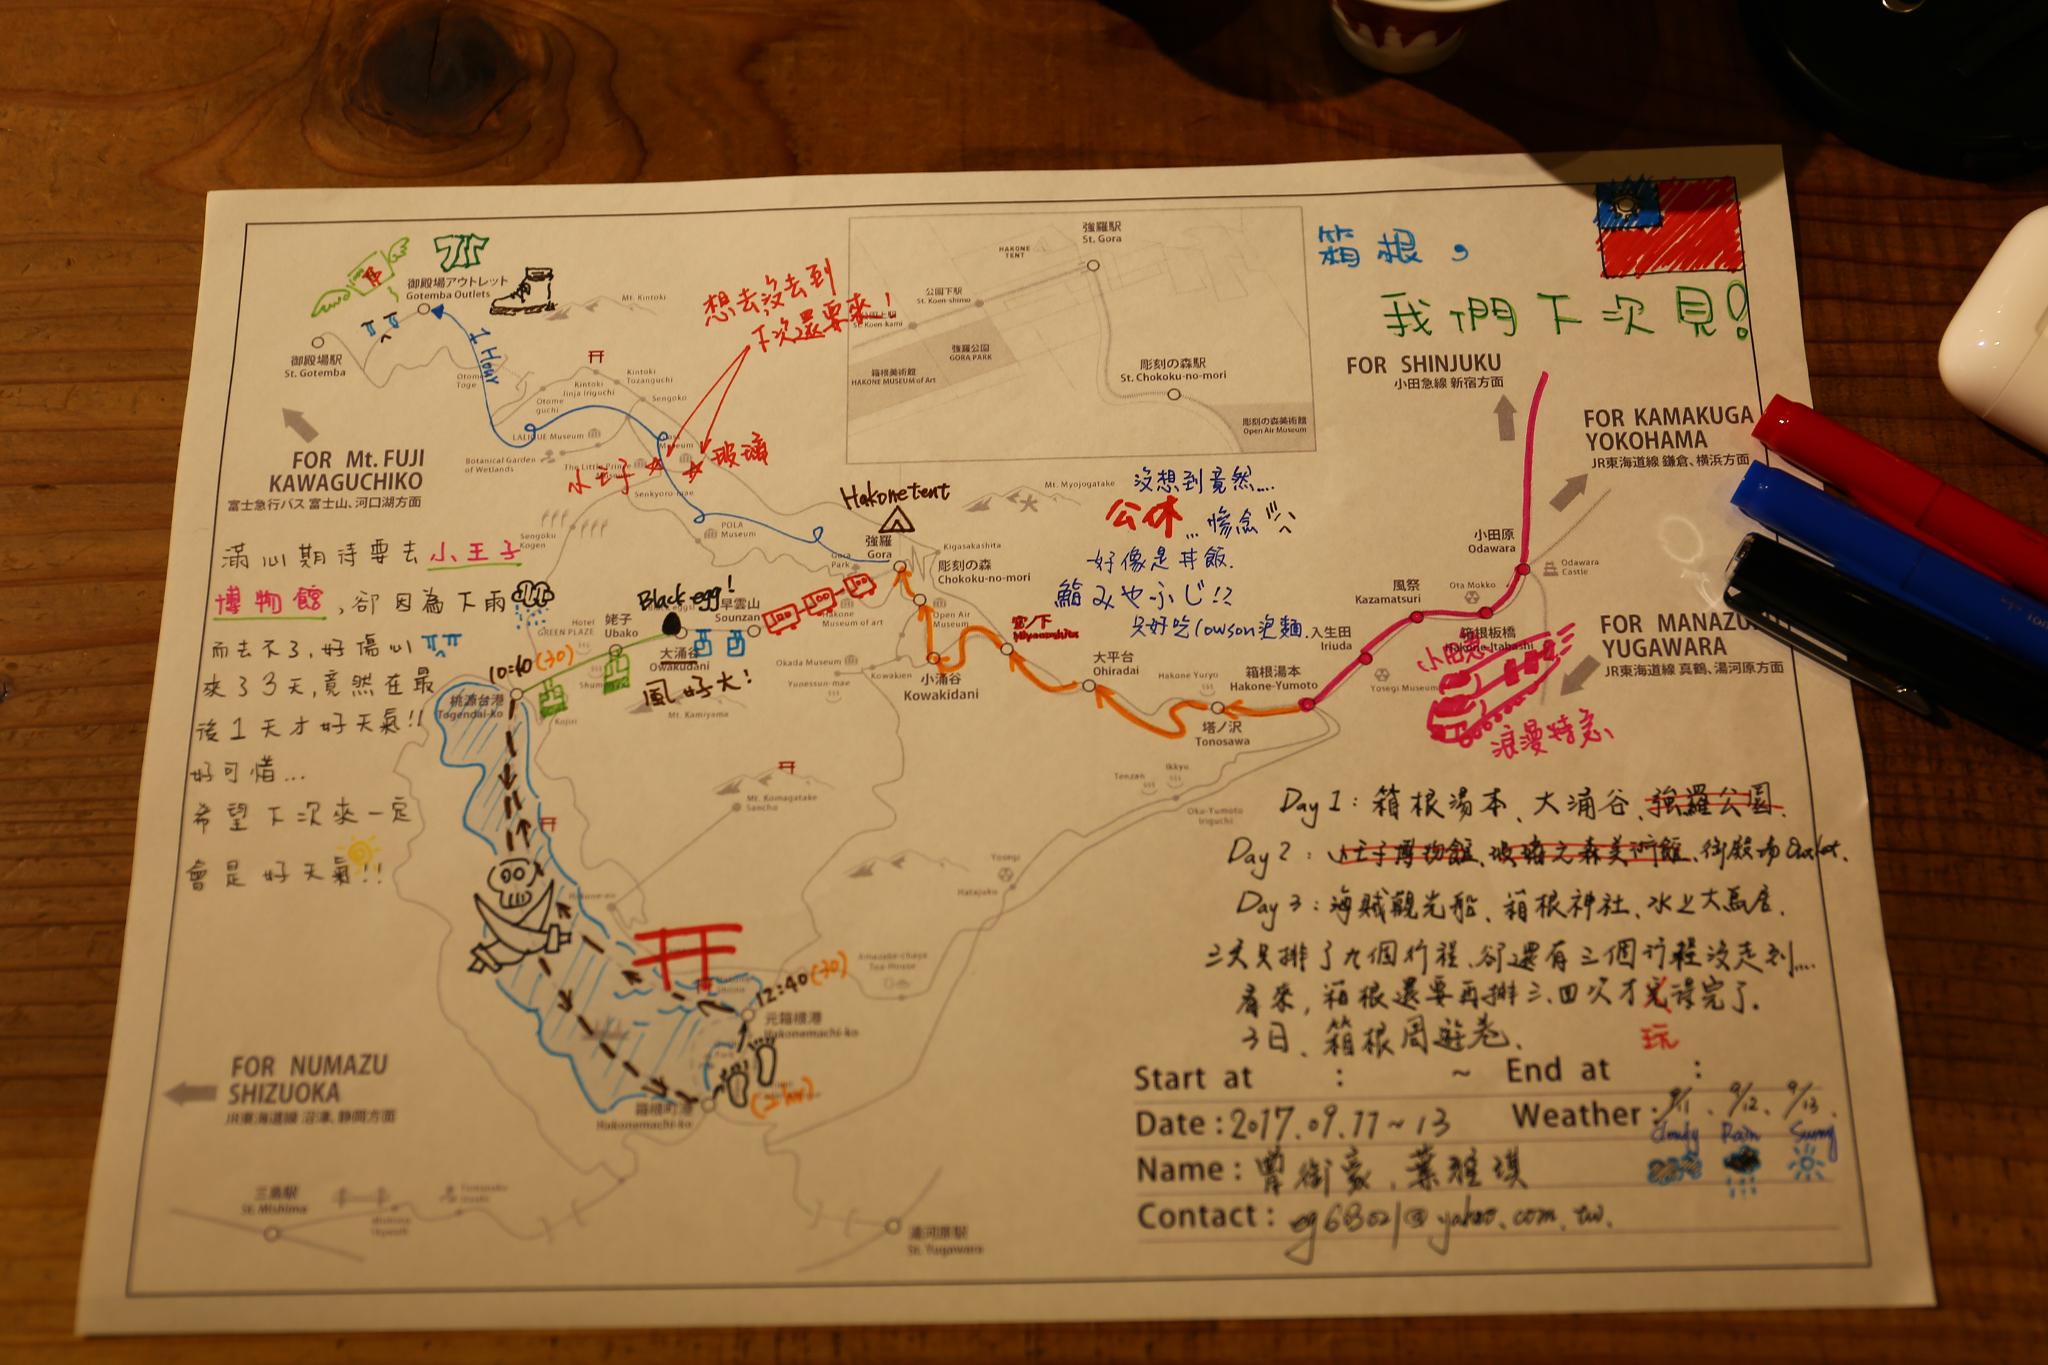 箱根,
我們下次見!
御殿場アウトレット
Gotemba Outlets
Mt. Kintoki
1 Hour
御殿場駅
St. Gotemba
想去沒去到
下次還要來!
強羅駅
St. Gora
HAKONE
TENT
公園下駅
St. Koen-shimo
St. Koen-kami
強羅公園
GORA PARK
箱根美術館
HAKONE MUSEUM of Art
彫刻の森駅
St. Chokoku-no-mori
彫刻の森美術館
Open Air Museum
FOR SHINJUKU
小田急線 新宿方面
FOR KAMAKUGA
YOKOHAMA
JR東海道線 鎌倉、横浜方面
FOR Mt. FUJI
KAWAGUCHIKO
富士急行バス 富士山、河口湖方面
Kintoki
Jinja Iriguchi
Kintoki
Tozanguchi
Otome
guchi
Sengoko
LALIQUE Museum
Botanical Garden
of Wetlands
The Little Prince
Senkyoro-mae
小王子
玻璃
Sengoku
Kogen
POLA
Museum
Hakone tent
Mt. Myojogatake
強羅
Gora
Gora
Park
Kigasakashita
彫刻の森
Chokoku-no-mori
Open Air
Museum
沒想到竟然....
公休...慘念
好像是丼飯.
鮨みやふじ!?
只好吃Lowson泡麵.
滿心期待要去小王子
博物館,卻因為下雨
而去不了,好傷心
來了3天,竟然在最
後1天才好天氣!!
好可惜...
希望下次來一定
會是好天氣!!
Hotel
GREEN PLAZE
姥子
Ubako
Black egg!
早雲山
Sounzan
大涌谷
Owakudani
風好大!
Mt. Kamiyama
Hakone
Museum of art
Okada Museum
Yunessun-mae
Kowakien
小涌谷
Kowakidani
宮ノ下
Miyanoshita
大平台
Ohiradai
Hakone Yuryo
塔ノ沢
Tonosawa
箱根湯本
Hakone-Yumoto
入生田
Iriuda
風祭
Kazamatsuri
Ota Mokko
箱根板橋
Hakone-Itabashi
小田原
Odawara
Odawara
Castle
Yosegi Museum
小田急
浪漫特急
FOR MANAZU
YUGAWARA
JR東海道線 真鶴、湯河原方面
10:40 (30)
桃源台港
Togendai-ko
Kojiri
Mt. Komagatake
Sancho
Tenzan
Ikkyu
Oku-Yumoto
Iriguchi
Hatajuku
Amazake-chaya
Tea-House
12:40 (30)
元箱根港
Hakonemachi-ko
(2hr)
箱根町港
Hakonemachi-ko
FOR NUMAZU
SHIZUOKA
JR東海道線 沼津、静岡方面
三島駅
St. Mishima
湯河原駅
St. Yugawara
Day 1: 箱根湯本、大涌谷、強羅公園.
Day 2: 小王子博物館、玻璃之森美術館、御殿場Outlet.
Day 3: 海賊觀光船、箱根神社、水上大鳥居.
三天只排了九個行程、卻還有三個行程沒走到....
看來,箱根還要再排三、四次才完得完了.
玩
3日、箱根周遊卷.
Start at : ~ End at :
Date: 2017.09.11~13 Weather: 9/11、9/12、9/13.
Cloudy Rain Sunny
Name: 曾街豪、葉雅琪
Contact: eg6B021@yahoo.com.tw.